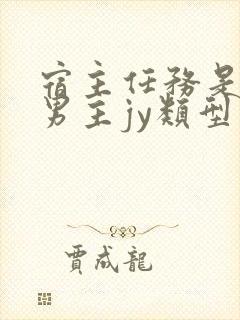 宿主任務是
男主jy類型
賈成龍